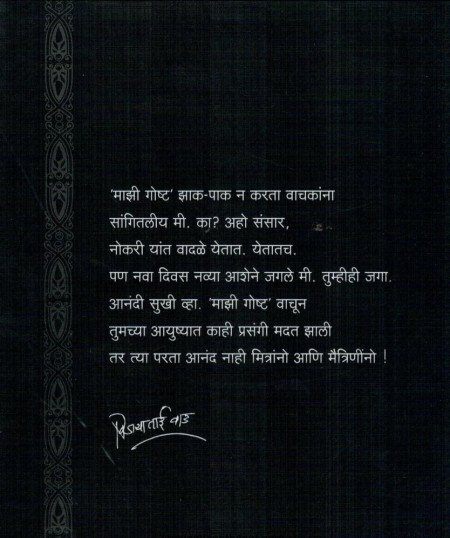 'माझी गोष्ट' झाक-पाक न करता वाचकांना
सांगितलीय मी. का? अहो संसार,
नोकरी यांत वादळे येतात. येतातच.
पण नवा दिवस नव्या आशेने जगले मी. तुम्हीही जगा.
आनंदी सुखी व्हा. 'माझी गोष्ट' वाचून
तुमच्या आयुष्यात काही प्रसंगी मदत झाली
तर त्या परता आनंद नाही मित्रांनो आणि मैत्रिणींनो !
विजयाताई वाड